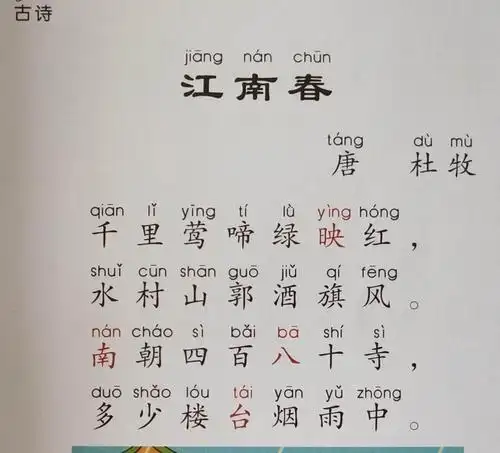 古诗
jiāng nán chūn
江南春
táng dù mù
唐 杜牧
qiān lǐ yīng tí lǜ yìng hóng
千里莺啼绿映红，
shuǐ cūn shān guō jiǔ qí fēng
水村山郭酒旗风。
nán cháo sì bǎi bā shí sì
南朝四百八十寺，
duō shǎo lóu tái yān yǔ zhōng
多少楼台烟雨中。